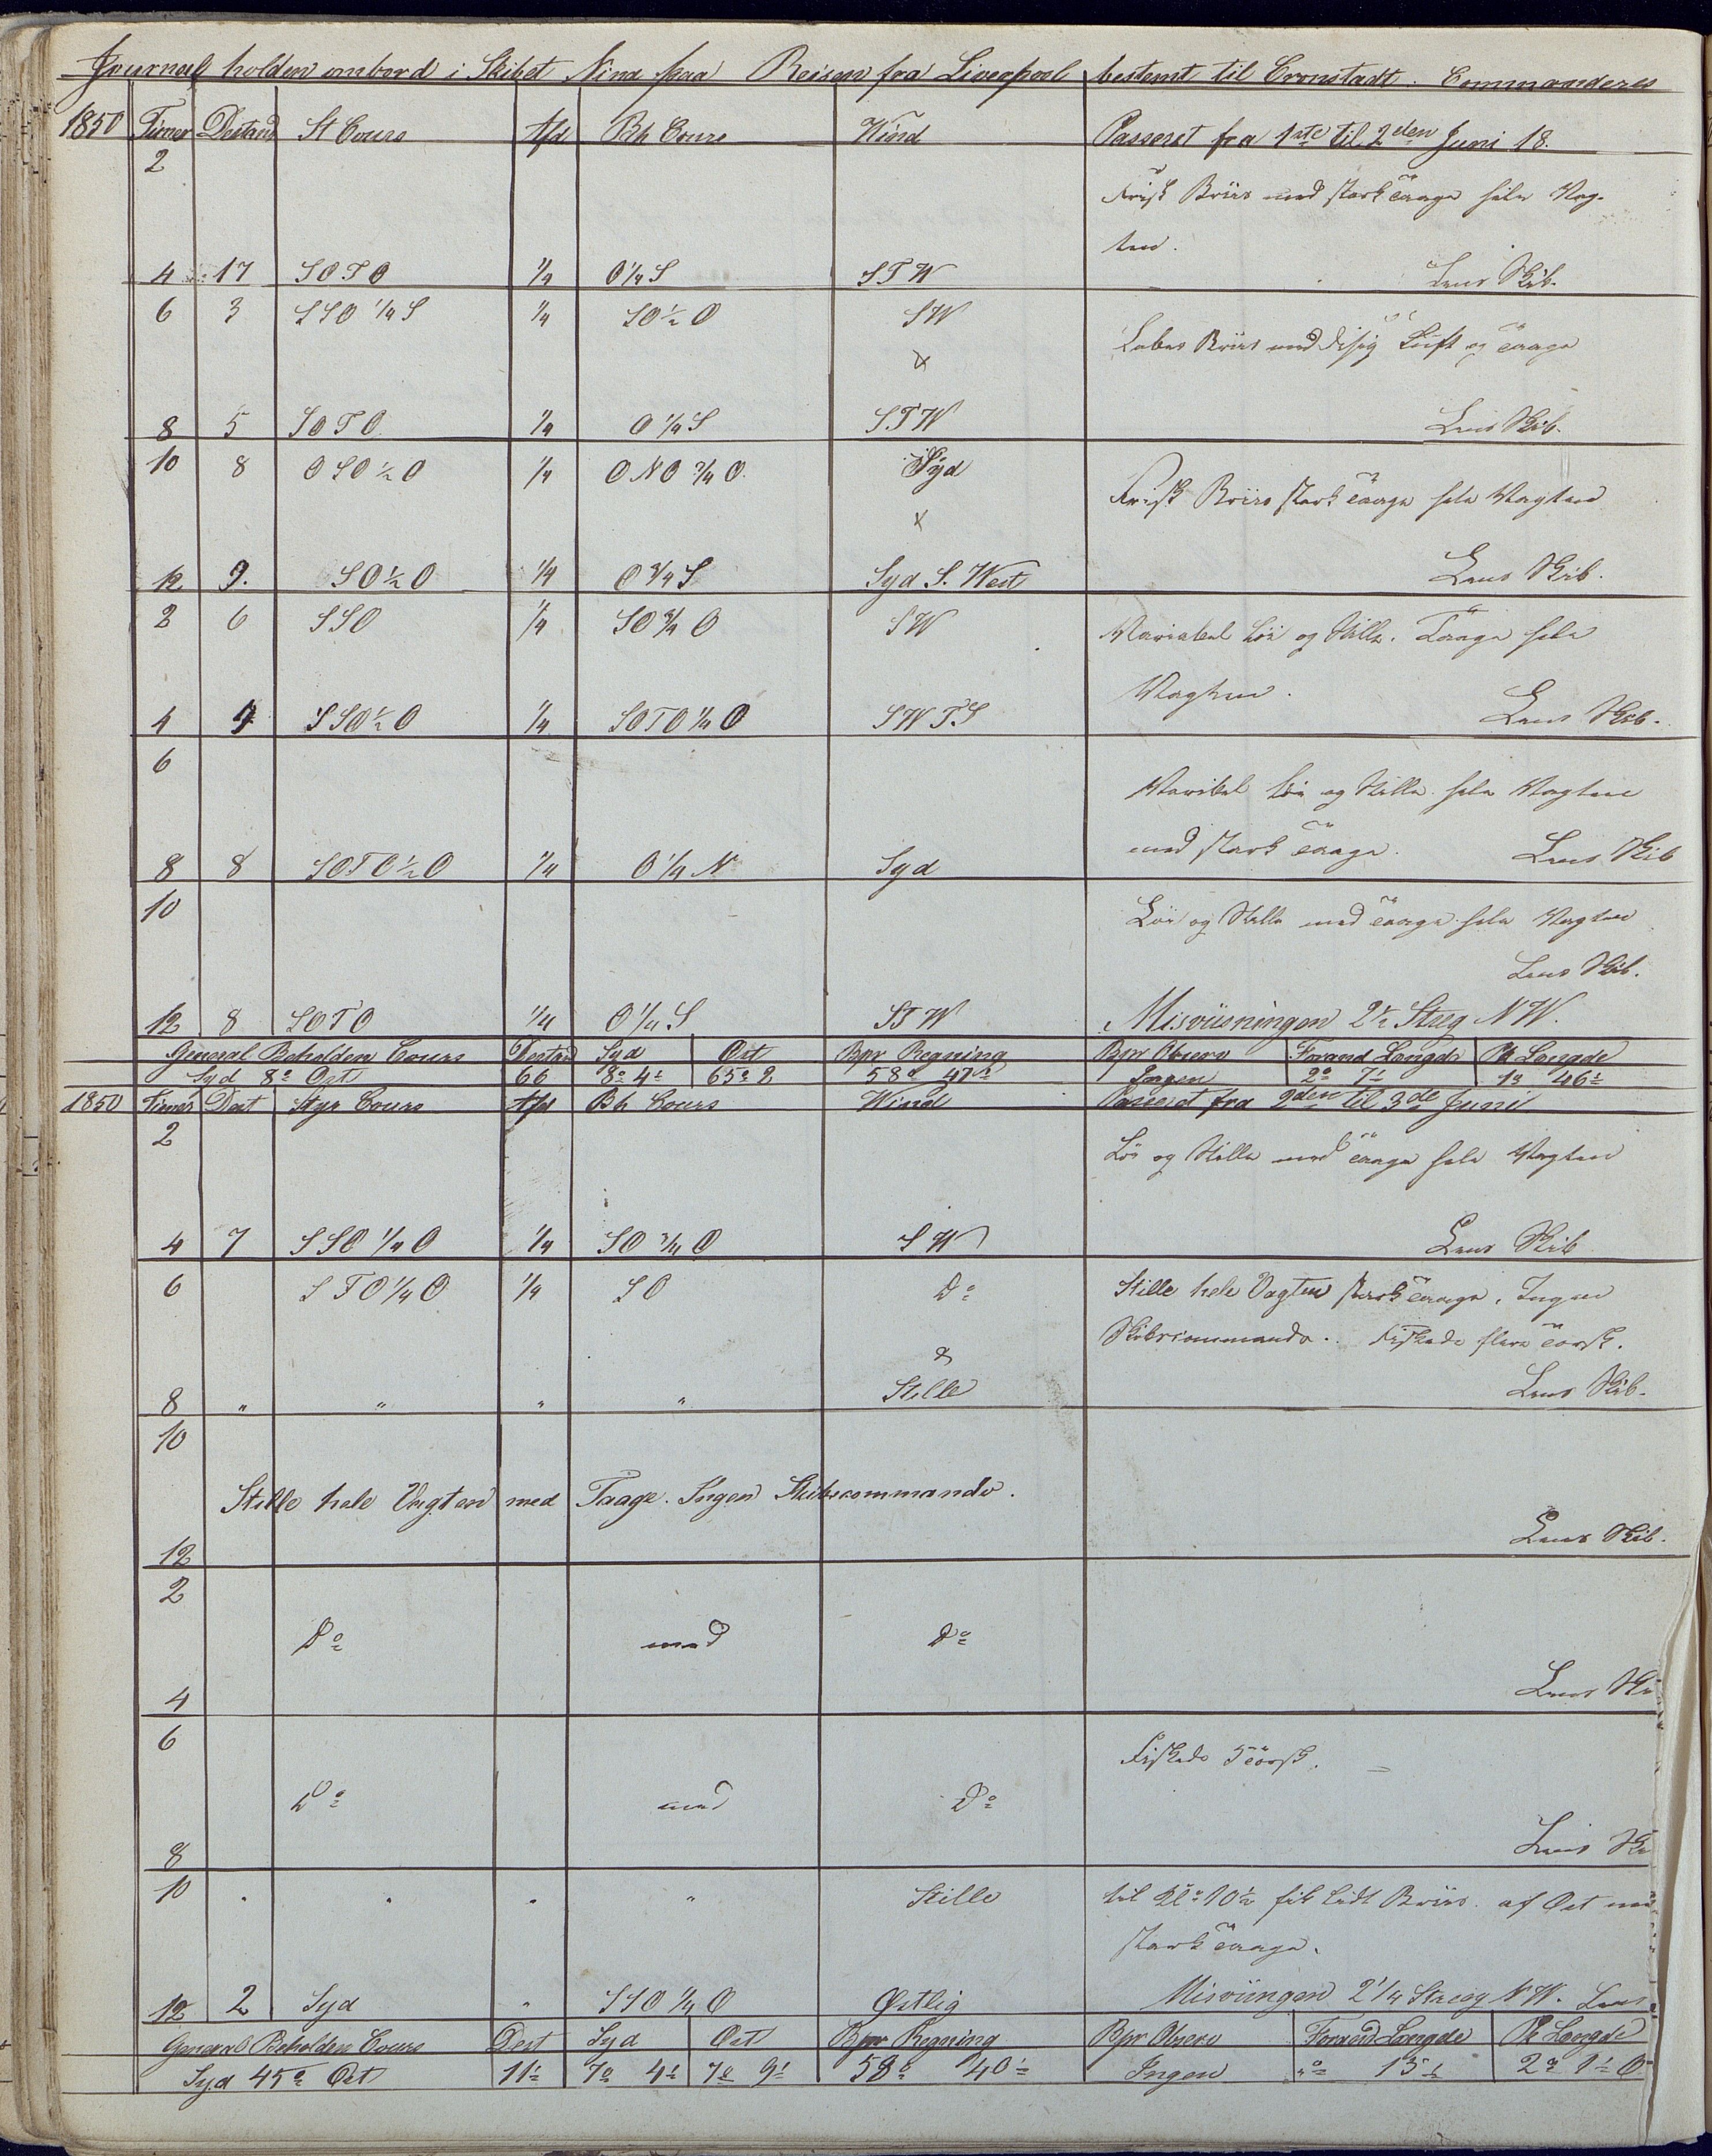 Journal holden ombord i Skibet Nina paa Reisen fra Liverpool bestemt til Cronstadt. Commanderes
1850 Timer Destand St Cours Afd Bh Cours Wind Passeret fra 1ste til 2den Juni 18.
2 Frisk Briis med stærk Taage hele Vag-
ten.
4 17 SOTO 1/4 O 1/4 S STW Lens Skib.
6 3 SSO 1/4 S 1/4 SO 1/2 O SW
Laber Briis med disig Luft og Taage
&
8 5 SOTO 1/4 O 1/4 S STW Lens Skib.
10 8 OSO 1/2 O 1/4 ONO 3/4 O Syd
Frisk Briis stærk Taage hele Vagten
&
12 9. SO 1/2 O 1/4 O 3/4 S Syd S. West Lens Skib.
2 6 SSO 1/4 SO 3/4 O SW Variabel Löi og Stille. Taage hele
Vagten.
4 4 SSO 1/2 O 1/4 SOTO 1/4 O SWTS Lens Skib.
6
Varibel Löi og Stille hele Vagten
med stærk Taage.
8 8 SOTO 1/2 O 1/4 O 1/4 N Syd Lens Skib
10 Löi og Stille med Taage hele Vagten
Lens Skib.
12 8 SOTO 1/4 O 1/4 S STW Misviisningen 2 1/2 Streg NW.
General Beholden Cours Destand Syd Ost Bpr Regning Bpr Observ Forand Længde Pk Længde
Syd 8° Ost 66 8° 4' 65° 2 58° 47' Ingen 2° 7' 1° 46'
1850 Timer Dest Styr Cours Afd Bh Cours Wind Passeret fra 2den til 3de Juni
2 Löi og Stille med Taage hele Vagten
4 7 SSO 1/4 O 1/4 SO 3/4 O SW Lens Skib
6 STO 1/4 O 1/4 SO Do Stille hele Vagten stærk Taage. Ingen
Skibscommando. Fiskede flere Torsk.
&
8 " " " " Stille Lens Skib.
10
Stille hele Vagten med Taage. Ingen Skibscommando.
12 Lens Skib.
2
Do med Do
4 Lens Ski
6 Fiskede 5 Torsk.
Do med Do
8 Lens Sk
10 " " " " Stille til Kl: 10 1/2 fik lidt Briis af Ost me
stærk Taage.
12 2 Syd " SSO 1/4 O Østlig Misviingen 2 1/4 Streg NW. Lens
General Beholden Cours Dest Syd Ost Bpr Regning Bpr Observ Forand Længde Pk Længde
Syd 45° Ost 11' 7° 4' 7° 9' 58° 40' Ingen "° 15' 2° 1' O